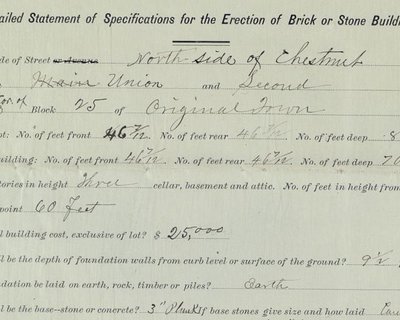 ailed Statement of Specifications for the Erection of Brick or Stone Buildi
de of Street or Avenue North side of Chestnut
Main Union and Second
Cor. of Block 25 of Original Town
ot: No. of feet front 46 7/12 No. of feet rear 46 7/12 No. of feet deep 8
uilding: No. of feet front 46 7/12 No. of feet rear 46 7/12 No. of feet deep 70
tories in height Three cellar, basement and attic. No. of feet in height from
point 60 Feet
l building cost, exclusive of lot? $ 25,000
ll be the depth of foundation walls from curb level or surface of the ground? 9 1/2
dation be laid on earth, rock, timber or piles? Earth
ll be the base--stone or concrete? 3" Planks If base stones give size and how laid